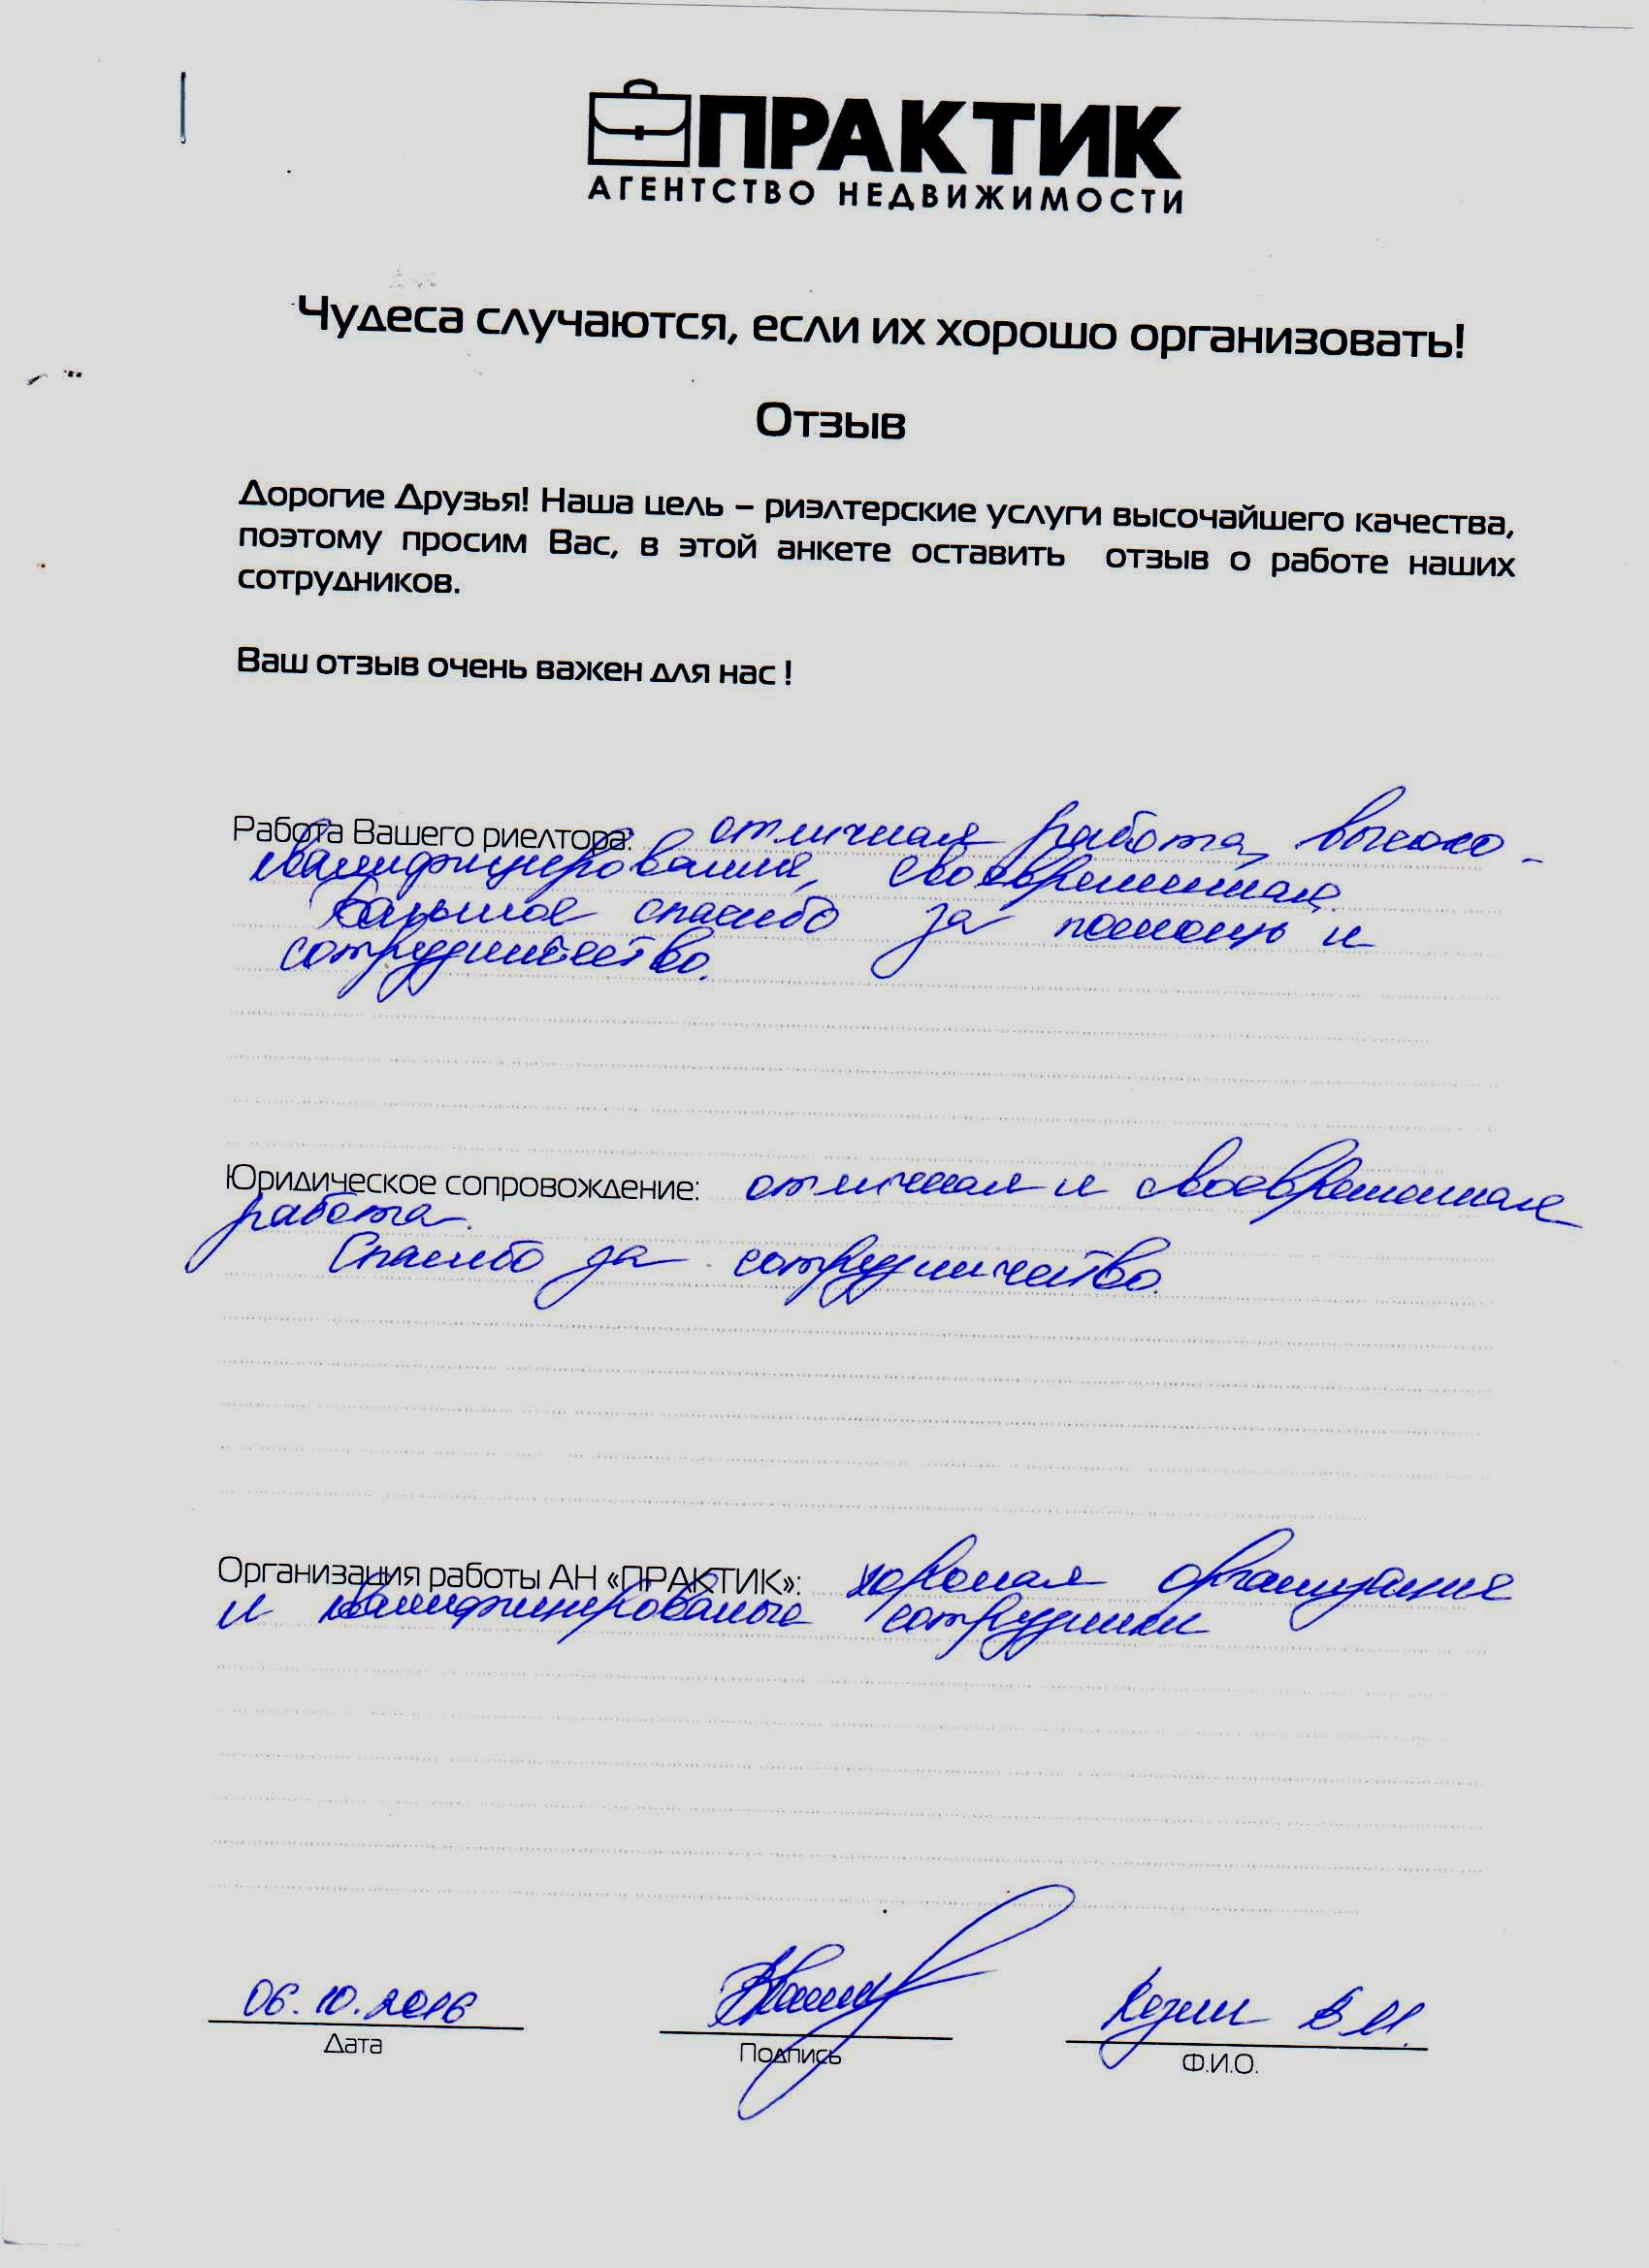 ПРАКТИК
АГЕНТСТВО НЕДВИЖИМОСТИ
Чудеса случаются, если их хорошо организовать!
Отзыв
Дорогие Друзья! Наша цель – риэлтерские услуги высочайшего качества,
поэтому просим Вас, в этой анкете оставить отзыв о работе наших
сотрудников.
Ваш отзыв очень важен для нас !
Работа Вашего риелтора: отличная работа, высоко-
квалифицированная, своевременная.
Большое спасибо за помощь и
сотрудничество.
Юридическое сопровождение: отличная и своевременная
работа.
Спасибо за сотрудничество.
Организация работы АН «ПРАКТИК»: хорошая организация
и квалифицированые сотрудники
06.10.2016
Дата
Подпись
В.И.
Ф.И.О.